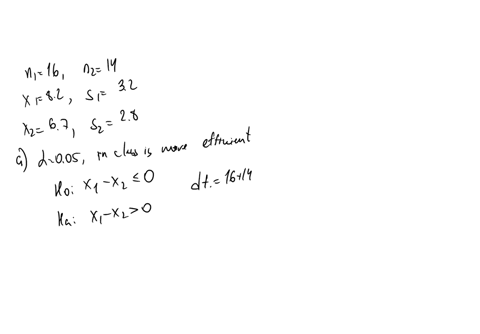 n₁=16, n₂=14
x₁=8.2, s₁=3.2
x₂=6.7, s₂=2.8
a) α=0.05, in class is more efficient
H₀: x₁-x₂≤0 df.=16+14
Ha: x₁-x₂>0